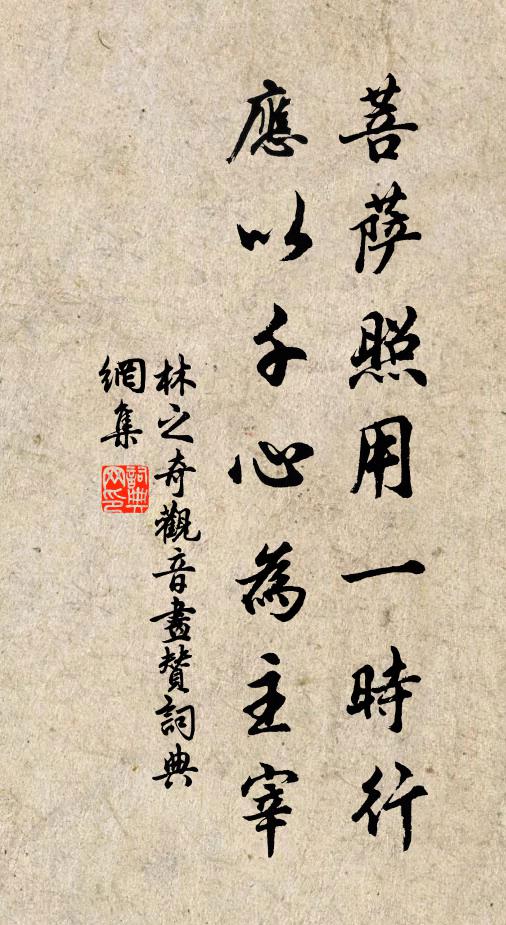 菩薩照用一時行
應以千心為主宰
林之奇觀音畫贊詞典
網集
詞典
网印